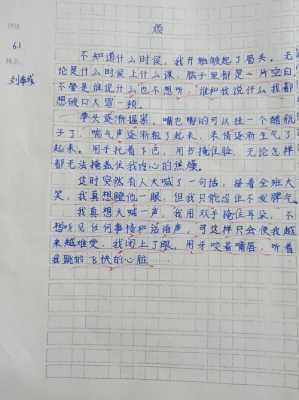 班级
6.1
姓名
烦
不知道什么时候，我开始皱起了眉头。无
论是什么时候上什么课，脑子里都是一片空白，
不管是谁说什么也不想听，谁和我说什么我都
想破口大骂一顿。
拳头逐渐握紧，嘴巴嘟的可以挂一个醋瓶
子了，喘气声逐渐粗了起来，表情逐渐生气了
起来。用手托着下巴，用书掩住脸，无论怎样
都无法掩盖住我内心的焦燥。
这时突然有人大喊了一句话，接着全班大
笑，我真想瞪他一眼，但我只能忍住不发脾气。
我真想大喊一声，我用双手掩住耳朵，不
想听见任何事情和话语声，可这样只会使我越
来越难受，我闭上了眼，用牙咬着嘴唇，听着
我跳的飞快的心脏。